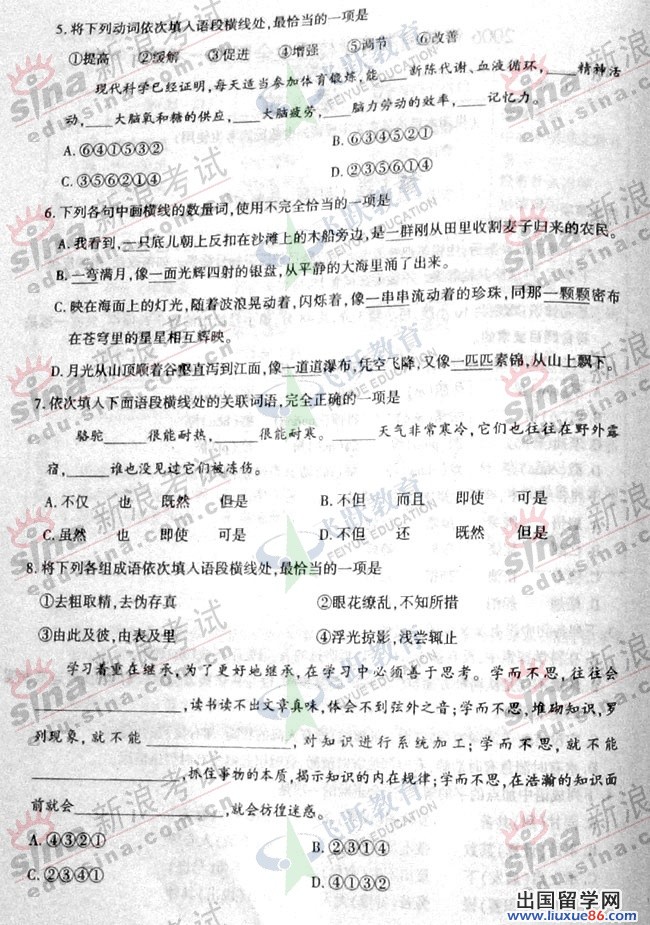 5. 将下列动词依次填入语段横线处,最恰当的一项是
①提高 ②缓解 ③促进 ④增强 ⑤调节 ⑥改善
现代科学已经证明,每天适当参加体育锻炼,能____新陈代谢、血液循环,____精神活
动,____大脑氧和糖的供应,____大脑疲劳,____脑力劳动的效率,____记忆力。
A. ⑥④①⑤③② B. ⑥③④⑤②①
C. ③⑤⑥②①④ D. ②③⑤⑥①④
6. 下列各句中画横线的数量词,使用不完全恰当的一项是
A. 我看到,一只底儿朝上反扣在沙滩上的木船旁边,是一群刚从田里收割麦子归来的农民。
B. 一弯满月,像一面光辉四射的银盘,从平静的大海里涌了出来。
C. 映在海面上的灯光,随着波浪晃动着,闪烁着,像一串串流动着的珍珠,同那一颗颗密布
在苍穹里的星星相互辉映。
D. 月光从山顶顺着谷壑直泻到江面,像一道道瀑布,凭空飞降,又像一匹匹素锦,从山上飘下。
7. 依次填入下面语段横线处的关联词语,完全正确的一项是
骆驼______很能耐热,______很能耐寒。______天气非常寒冷,它们也往往在野外露
宿,______谁也没见过它们被冻伤。
A. 不仅 也 既然 但是 B. 不但 而且 即使 可是
C. 虽然 也 即使 可是 D. 不但 还 既然 但是
8. 将下列各组成语依次填入语段横线处,最恰当的一项是
①去粗取精,去伪存真 ②眼花缭乱,不知所措
③由此及彼,由表及里 ④浮光掠影,浅尝辄止
学习着重在继承,为了更好地继承,在学习中必须善于思考。学而不思,往往会
____________,读书读不出文章真味,体会不到弦外之音;学而不思,堆砌知识,罗
列现象,就不能____________,对知识进行系统加工;学而不思,就不能
____________,抓住事物的本质,揭示知识的内在规律;学而不思,在浩瀚的知识面
前就会____________,就会彷徨迷惑。
A. ④③②① B. ②③①④
C. ②③④① D. ④①③②
sina 新浪考试
edu.sina.com.cn
飞跃教育
FEIYUE EDUCATION
出国留学网
www.liuxue86.com